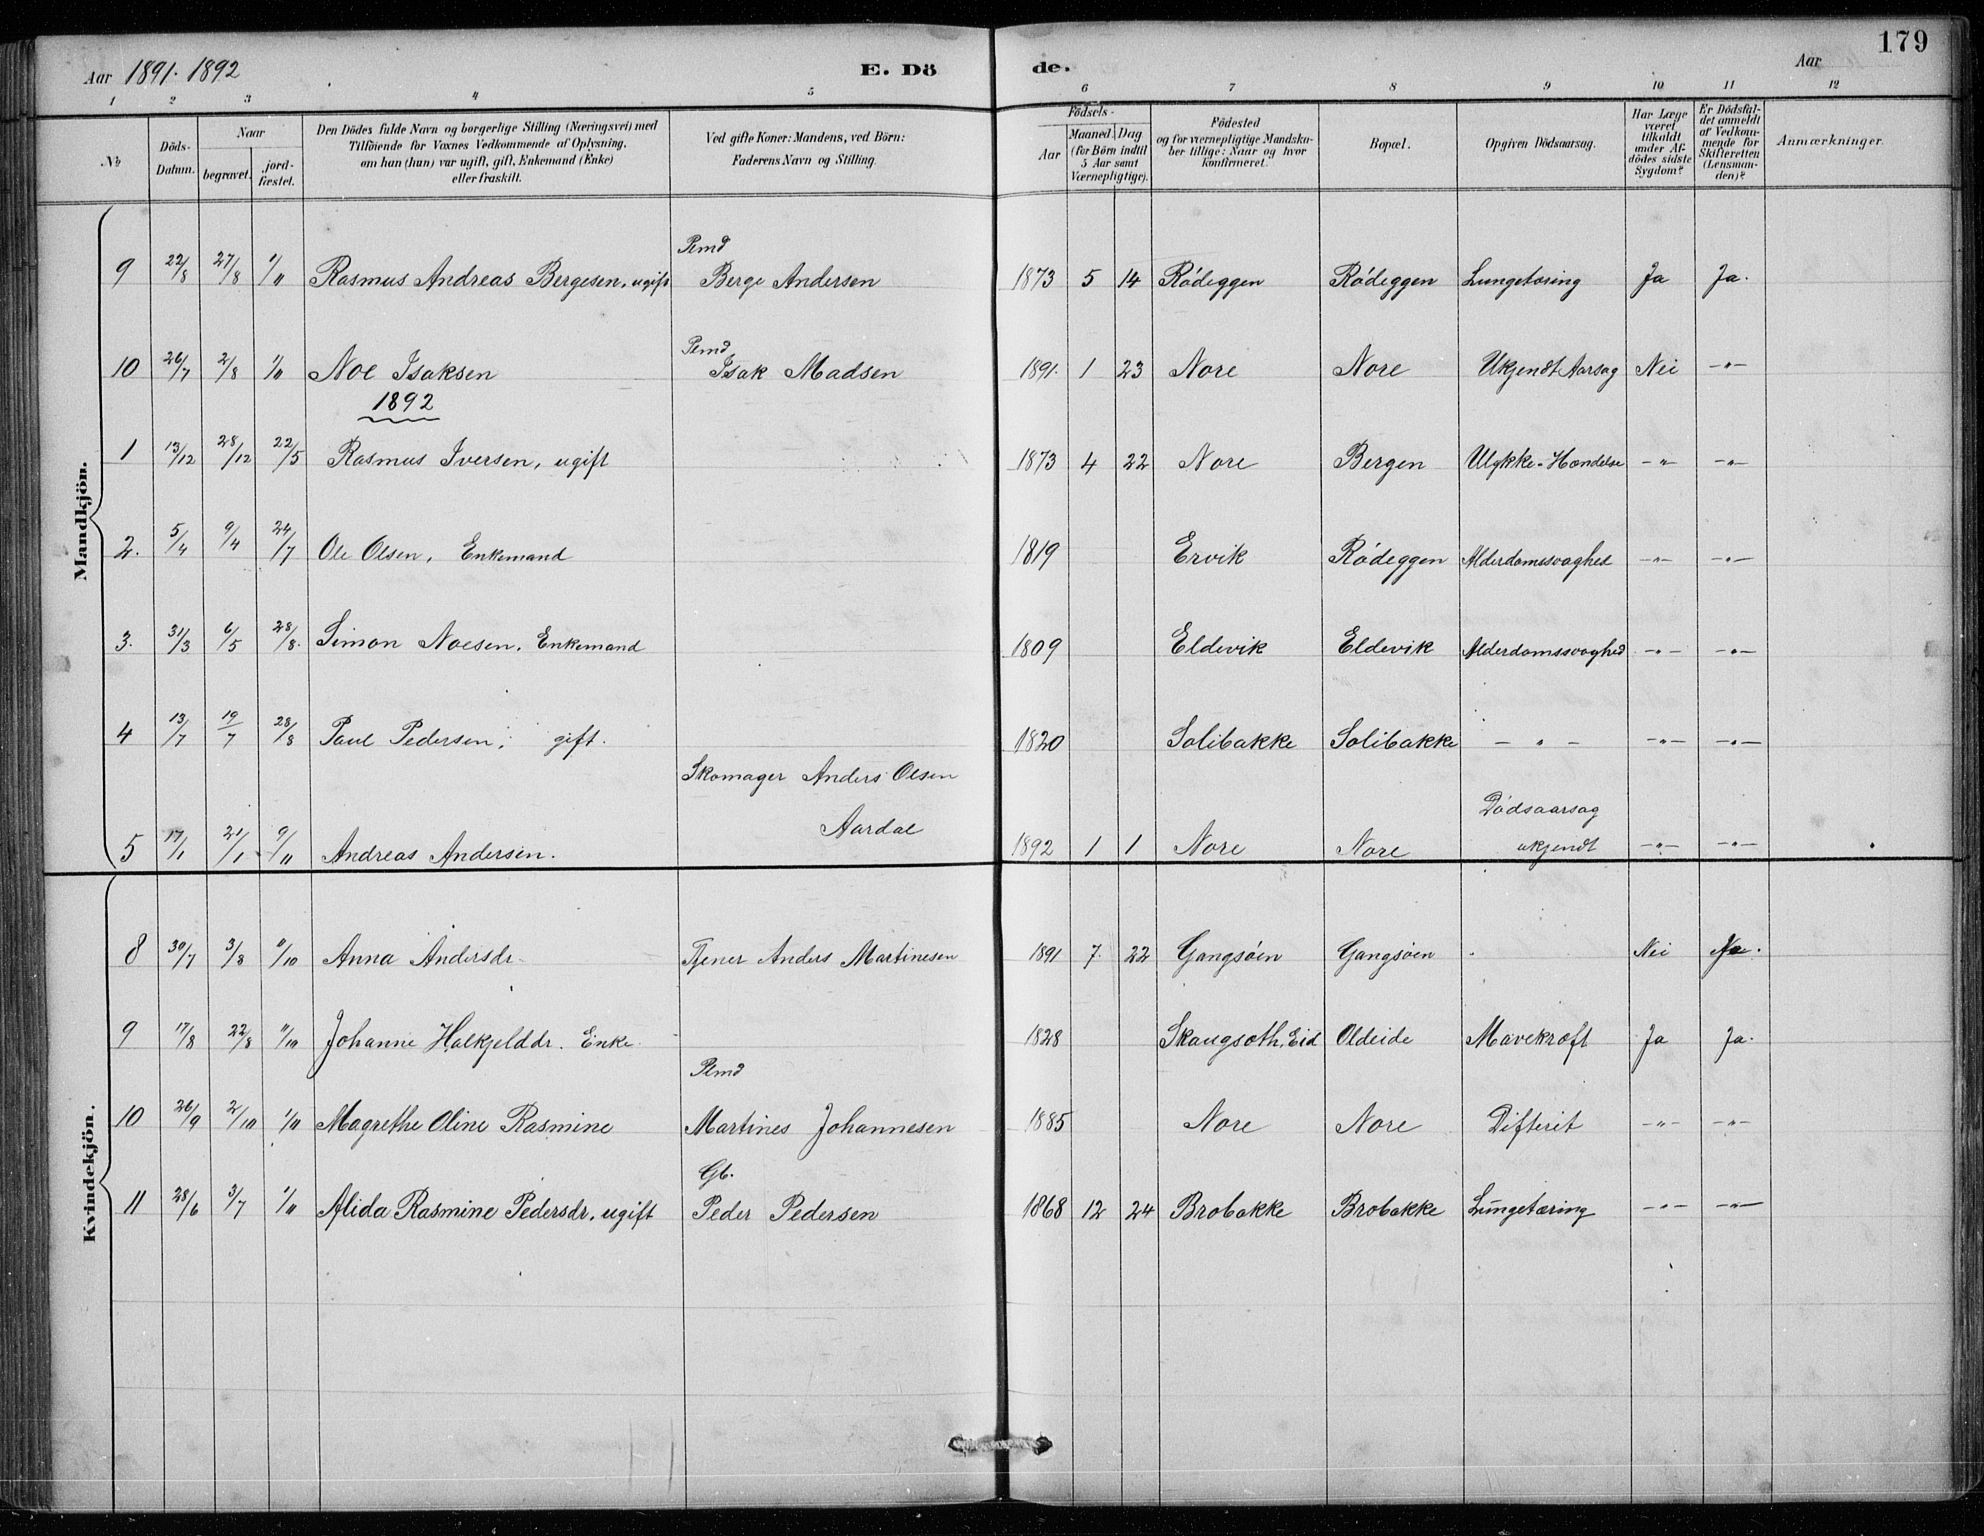 179
Aar 1891. 1892 E. Dö de. Aar
1 2 3 4 5 6 7 8 9 10 11 12
No
Döds-Datum.
Naar
begravet.
jord-fæstet.
Den Dödes fulde Navn og borgerlige Stilling (Næringsvei) med
Tilföiende for Voxnes Vedkommende af Oplysning,
om han (hun) var ugift, gift, Enkemand (Enke)
eller fraskilt.
Ved gifte Koner: Mandens, ved Börn:
Faderens Navn og Stilling.
Födsels-
Aar
Maaned. Dag
(for Börn indtil
5 Aar samt
Værnepligtige).
Födested
og for værnepligtige Mandska-
ber tillige: Naar og hvor
konfirmeret.
Bopæl.
Opgiven Dödsaarsag.
Har Læge
været
tilkaldt
under Af-
dödes sidste
Sygdom?
Er Dödsfal-
det anmeldt
af Vedkom-
mende for
Skifteretten
(Lensman-
den)?
Anmærkninger.
Mandkjön.
Plmd
9 22/8 27/8 1/11 Rasmus Andreas Bergesen, ugift Berge Andersen 1873 5 14 Rødeggen Rødeggen Lungetæring Ja Ja.
Plmd
10 26/7 2/8 1/11 Noe Isaksen Isak Madsen 1891. 1 23 Nore Nore Ukjendt Aarsag Nei -"-
1892
1 13/12 28/12 22/5 Rasmus Iversen, ugift 1873 4 22 Nore Bergen Ulykke-Hændelse -"- -"-
2. 5/4 9/4 24/7 Ole Olsen, Enkemand 1819 Ervik Rødeggen Alderdomssvaghed -"- -"-
3. 31/3 6/5 28/8. Simon Noesen, Enkemand 1809 Eldevik Eldevik Alderdomssvaghed -"- -"-
4 13/7 19/7 28/8 Paul Pedersen, gift. 1820 Solibakke Solibakke - " - -"- -"-
Skomager Anders Olsen
Aardal Dødsaarsag
5 17/1 21/1 9/11 Andreas Andersen. 1892 1 1 Nore Nore ukjendt -"- -"-
Kvindekjön.
8 30/7 3/8 11/10 Anna Andersdr. Tjener Anders Martinesen 1891 7. 22 Gangsøen Gangsøen Nei
9 17/8 22/8 11/10 Johanne Halkjelddr. Enke. 1828 Skaugseth, Eid Oldeide Mavekræft Ja Ja.
Plmd
10 26/9 2/10 1/11 Magrethe Oline Rasmine Martines Johannesen 1885 Nore Nore Difterit -"- -"-
Gb.
11 28/6 3/7 1/11 Alida Rasmine Pedersdr, ugift Peder Pedersen 1868 12 24 Brobakke Brobakke Lungetæring -"- -"-